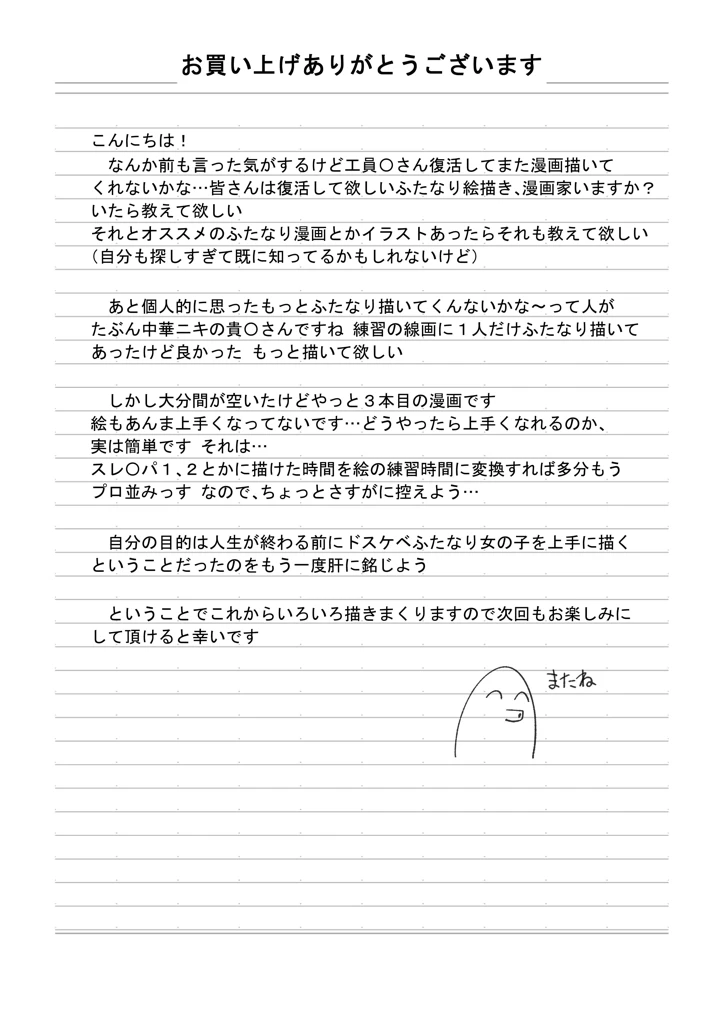 お買い上げありがとうございます
こんにちは！
　なんか前も言った気がするけど工員〇さん復活してまた漫画描いて
くれないかな…皆さんは復活して欲しいふたなり絵描き、漫画家いますか？
いたら教えて欲しい
それとオススメのふたなり漫画とかイラストあったらそれも教えて欲しい
（自分も探しすぎて既に知ってるかもしれないけど）
　あと個人的に思ったもっとふたなり描いてくんないかな～って人が
たぶん中華ニキの貴〇さんですね 練習の線画に１人だけふたなり描いて
あったけど良かった もっと描いて欲しい
　しかし大分間が空いたけどやっと３本目の漫画です
絵もあんま上手くなってないです…どうやったら上手くなれるのか、
実は簡単です それは…
スレ〇パ１、２とかに描けた時間を絵の練習時間に変換すれば多分もう
プロ並みっす なので、ちょっとさすがに控えよう…
　自分の目的は人生が終わる前にドスケベふたなり女の子を上手に描く
ということだったのをもう一度肝に銘じよう
　ということでこれからいろいろ描きまくりますので次回もお楽しみに
して頂けると幸いです
またね